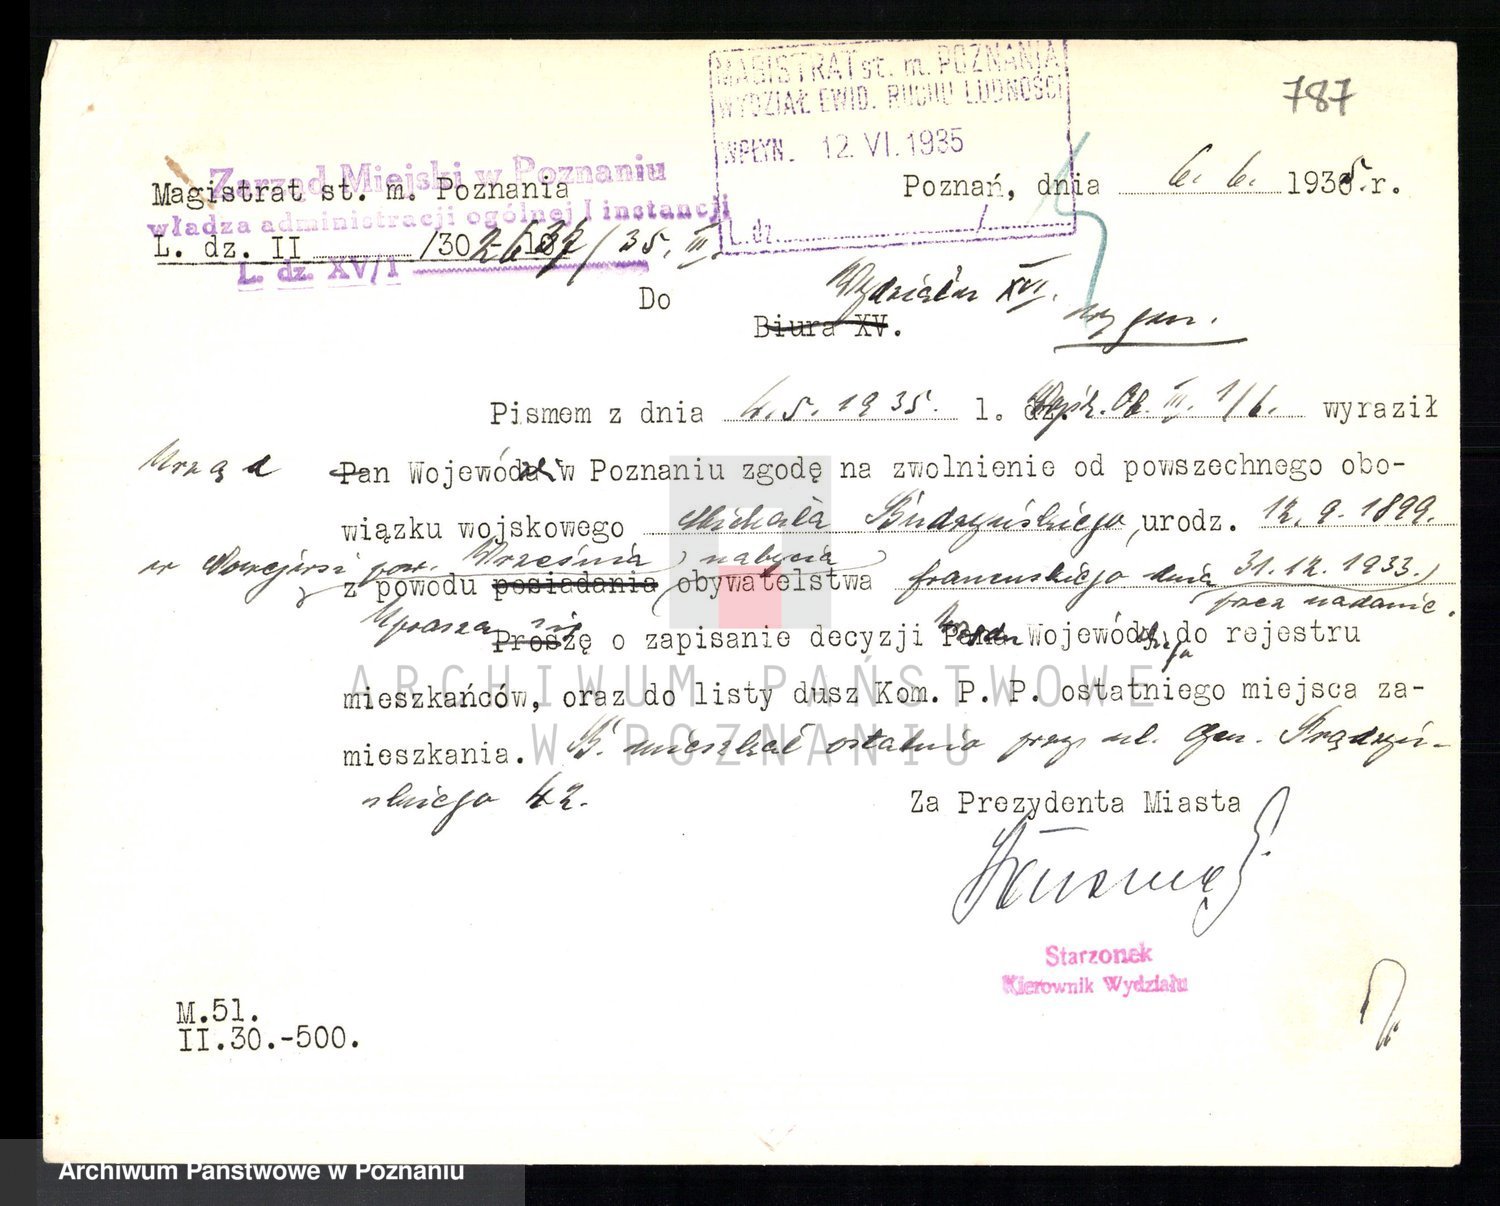 787
MAGISTRAT st. m. POZNANIA
WYDZIAŁ EWID. RUCHU LUDNOŚCI
WPŁYN. 12. VI. 1935
L. dz.
Zarząd Miejski w Poznaniu
Magistrat st. m. Poznania
władza administracji ogólnej I instancji
L. dz. II /30 /35. III.
L. dz. XV/I
Poznań, dnia 6. 6. 1935 r.
Do
Wydziału XVI.
Biura XV.
Pismem z dnia 4. 5. 1935. l. dz. Wojsk. Ob. III. 1/6. wyraził
Urząd Pan Wojewódzki w Poznaniu zgodę na zwolnienie od powszechnego obo-
wiązku wojskowego Michała Budzyńskiego, urodz. 12. 9. 1899.
w pow. Września nabycia
z powodu posiadania obywatelstwa francuskiego dnia 31. 12. 1933.
przez nadanie.
Uprasza się
Proszę o zapisanie decyzji Pana Wojewódzkiego do rejestru
mieszkańców, oraz do listy dusz Kom. P. P. ostatniego miejsca za-
mieszkania. B. mieszkał ostatnio przy ul. Gen. Prądzyń-
skiego 42.
Za Prezydenta Miasta
Starzonek
Kierownik Wydziału
M.51.
II.30.-500.
ARCHIWUM PAŃSTWOWE
W POZNANIU
Archiwum Państwowe w Poznaniu